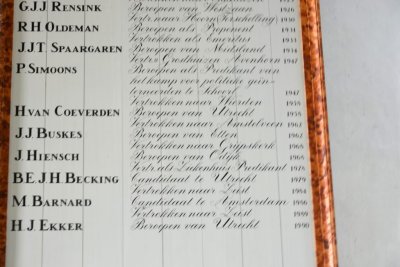 G.J.J. Rensink Beroepen van Westzaan 1926
Vertr. naar Hoorn (Terschelling) 1930
R.H. Oldeman Beroepen als Proponent 1931
Vertrokken als Emeritus 1931
J.J.T. Spaargaren Beroepen van Midsland 1934
Vertr. Avenhorn 1947
P. Simoons Beroepen als Predikant van
het kamp voor politieke geïn-
terneerden te Schoorl 1947
Vertrokken naar Wierden 1958
H van Coeverden Beroepen van Utrecht 1958
Vertrokken naar Amstelveen
J.J. Buskes Beroepen van Etten 1962
Vertrokken naar Grijpskerk
J. Hiensch Beroepen van Odijk 1968
Vertr. als Ziekenhuis Predikant
B.E.J.H. Becking Candidaat te Utrecht 1979
Vertrokken naar Zeist 1984
M. Barnard Candidaat te Amsterdam
Vertrokken naar Zeist 1989
H.J. Ekker Beroepen van Utrecht 1990